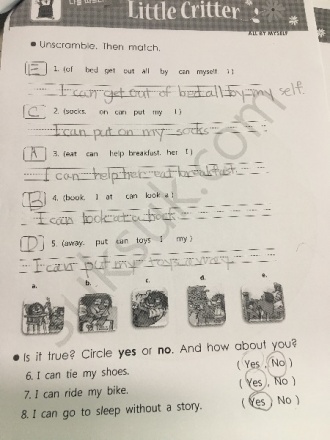 Little Critter
ALL BY MYSELF
Unscramble. Then match.
E 1. (of bed get out all by can myself I)
I can get out of bed all by my self.
C 2. (socks. on can put my I)
I can put on my socks
A 3. (eat can help breakfast. her I)
I can help her eat breakfast
B 4. (book. I at can look a)
I can look at a book
D 5. (away. put can toys I my)
I can put my toys away
a. b. c. d. e.
Is it true? Circle yes or no. And how about you?
6. I can tie my shoes. (Yes, No)
7. I can ride my bike. (Yes, No)
8. I can go to sleep without a story. (Yes, No)